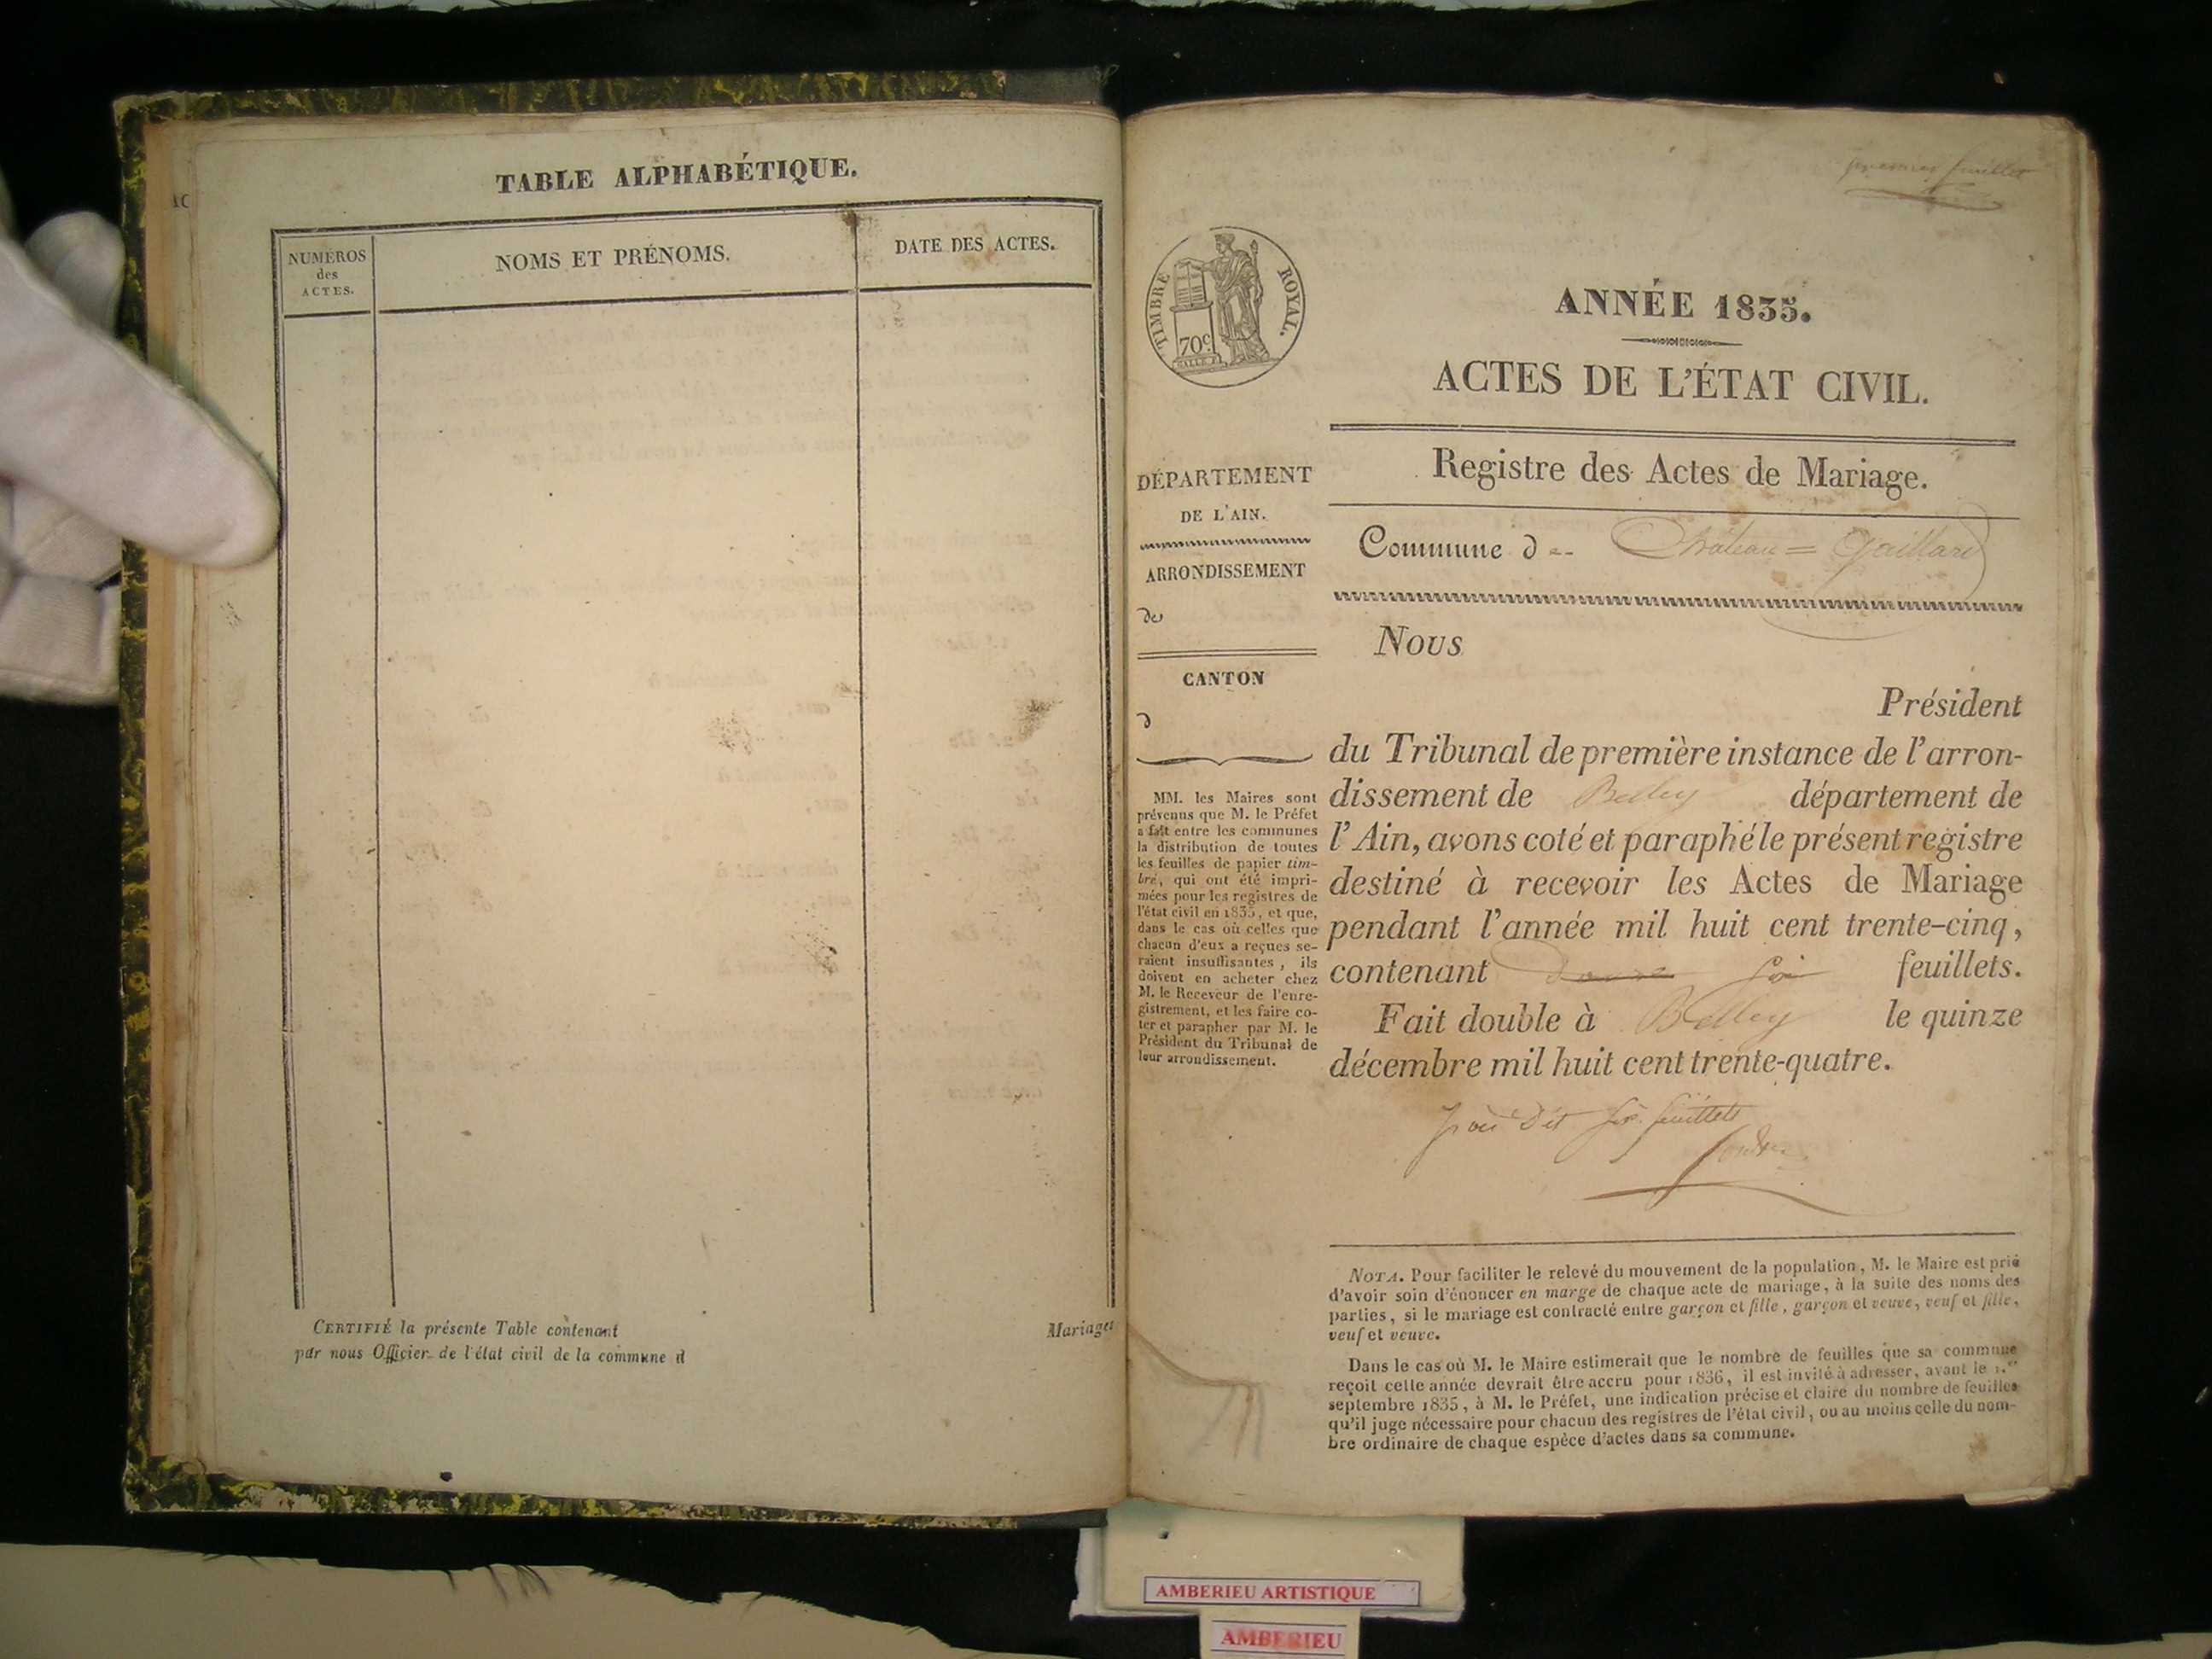 TABLE ALPHABÉTIQUE.
NUMÉROS
des
ACTES.
NOMS ET PRÉNOMS.
DATE DES ACTES.
CERTIFIÉ la présente Table contenant Mariages
par nous Officier de l'état civil de la commune d
premier feuillet
TIMBRE ROYAL.
70c
ANNÉE 1835.
ACTES DE L'ÉTAT CIVIL.
Registre des Actes de Mariage.
DÉPARTEMENT
DE L'AIN.
ARRONDISSEMENT
de
CANTON
d
MM. les Maires sont
prévenus que M. le Préfet
a fait entre les communes
la distribution de toutes
les feuilles de papier tim-
bré, qui ont été impri-
mées pour les registres de
l'état civil en 1835, et que,
dans le cas où celles que
chacun d'eux a reçues se-
raient insuffisantes, ils
doivent en acheter chez
M. le Receveur de l'enre-
gistrement, et les faire co-
ter et parapher par M. le
Président du Tribunal de
leur arrondissement.
Commune de Château=Gaillard
Nous
Président
du Tribunal de première instance de l'arron-
dissement de Belley département de
l'Ain, avons coté et paraphé le présent registre
destiné à recevoir les Actes de Mariage
pendant l'année mil huit cent trente-cinq,
contenant six feuillets.
Fait double à Belley le quinze
décembre mil huit cent trente-quatre.
dit six feuillets
NOTA. Pour faciliter le relevé du mouvement de la population, M. le Maire est prié
d'avoir soin d'énoncer en marge de chaque acte de mariage, à la suite des noms des
parties, si le mariage est contracté entre garçon et fille, garçon et veuve, veuf et fille,
veuf et veuve.
Dans le cas où M. le Maire estimerait que le nombre de feuilles que sa commune
reçoit cette année devrait être accru pour 1836, il est invité à adresser, avant le 1.er
septembre 1835, à M. le Préfet, une indication précise et claire du nombre de feuilles
qu'il juge nécessaire pour chacun des registres de l'état civil, ou au moins celle du nom-
bre ordinaire de chaque espèce d'actes dans sa commune.
AMBERIEU ARTISTIQUE
AMBERIEU